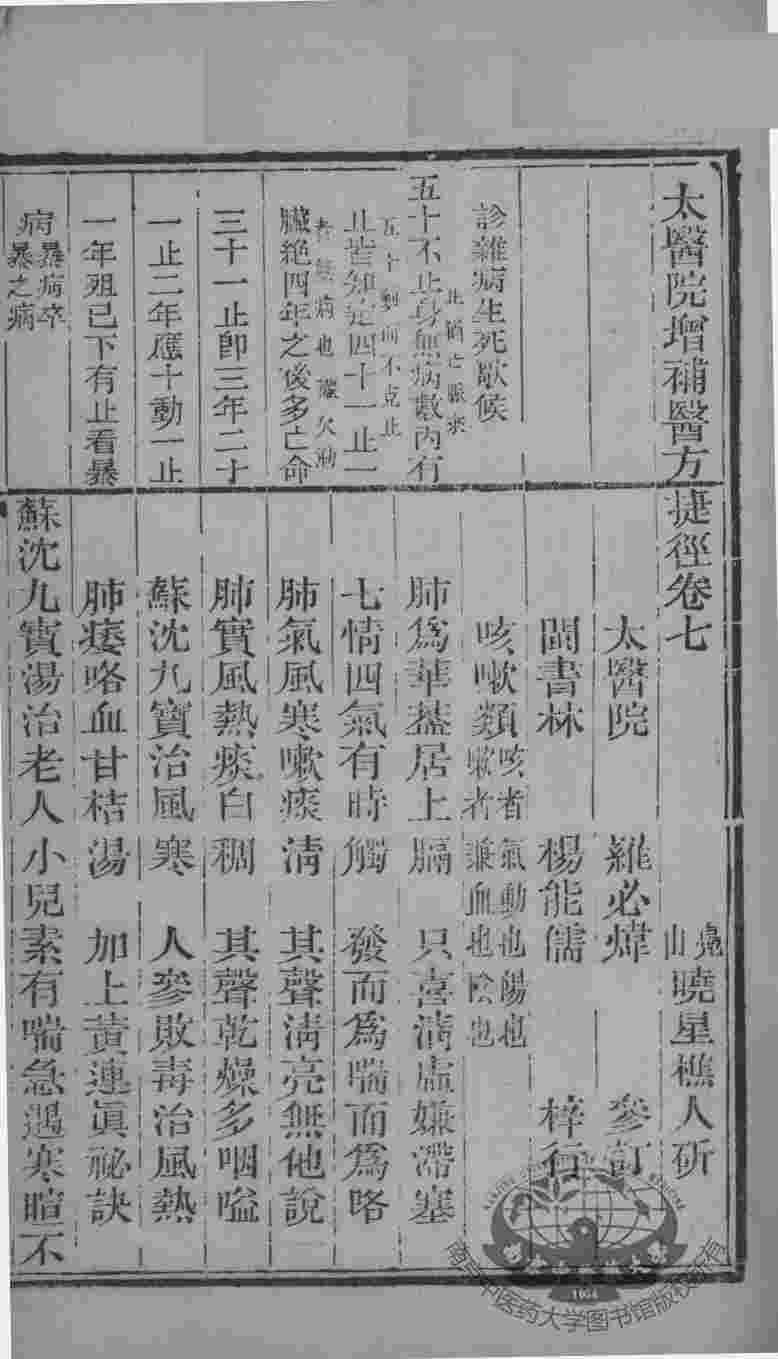 太醫院增補醫方捷徑卷七
鳧山曉星樵人斫
太醫院 羅必煒 參訂
閩書林 楊能儒 梓行
診雜病生死歌候
五十不止身無病數內有
止皆知定四十一止一
臟絕四年之後多亡命
三十一止卽三年二十
一止二年應十動一止
一年殂已下有止看暴
病暴病卒
暴之病
咳嗽類 咳者氣動也陽也
嗽者兼血也陰也
肺爲華蓋居上膈 只喜清虛嫌滯塞
七情四氣有時觸 發而爲喘而爲咯
肺氣風寒嗽痰清 其聲清亮無他說
肺實風熱痰白稠 其聲乾燥多咽嗌
蘇沈九寶治風寒 人參敗毒治風熱
肺痿咯血甘桔湯 加上黃連眞祕訣
蘇沈九寶湯治老人小兒素有喘急遇寒暄不
南京中医药大学图书馆版权所有
1954